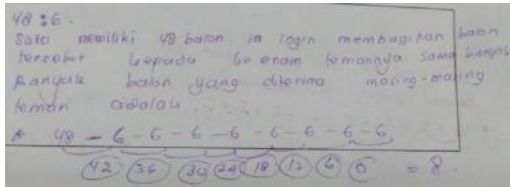 48 : 6.
Sato memiliki 48 balon. ia ingin membagikan balon
tersebut kepada ke enam temannya sama banyak
Banyak balon yang diterima masing-masing
teman adalah .....
* 48 - 6 - 6 - 6 - 6 - 6 - 6 - 6 - 6
42 36 30 24 18 12 6 0 = 8.